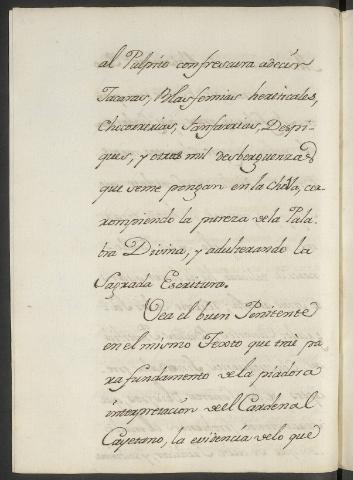 al Pulpito con frescura a decir
Jacaras, Blasfemias hereticales,
Chocarrerias, Fanfarrias, Despi-
ques, y otras mil desberguenzas
que se me pongan en la Cholla, co-
rrompiendo la pureza de la Pala-
bra Divina, y adulterando la
Sagrada Escritura.
Vea el buen Penitente
en el mismo Texto que traè pa
ra fundamento de la piadosa
interpretación del Cardenal
Cayetano, la evidencia de lo que